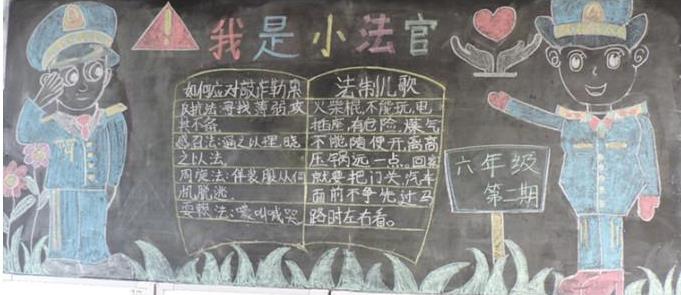 我是小法官
如何应对敲诈勒索
反抗法:寻找薄弱,攻
其不备
感召法:动之以理,晓
之以法。
周旋法:佯装服从伺
机脱逃
耍赖法:喊叫哭
法制儿歌
火柴棍,不能玩,电
插座,有危险,煤气
不能随便开,离高
压锅远一点。回家
就要把门关,汽车
面前不争先,过马
路时左右看。
六年级
第二期